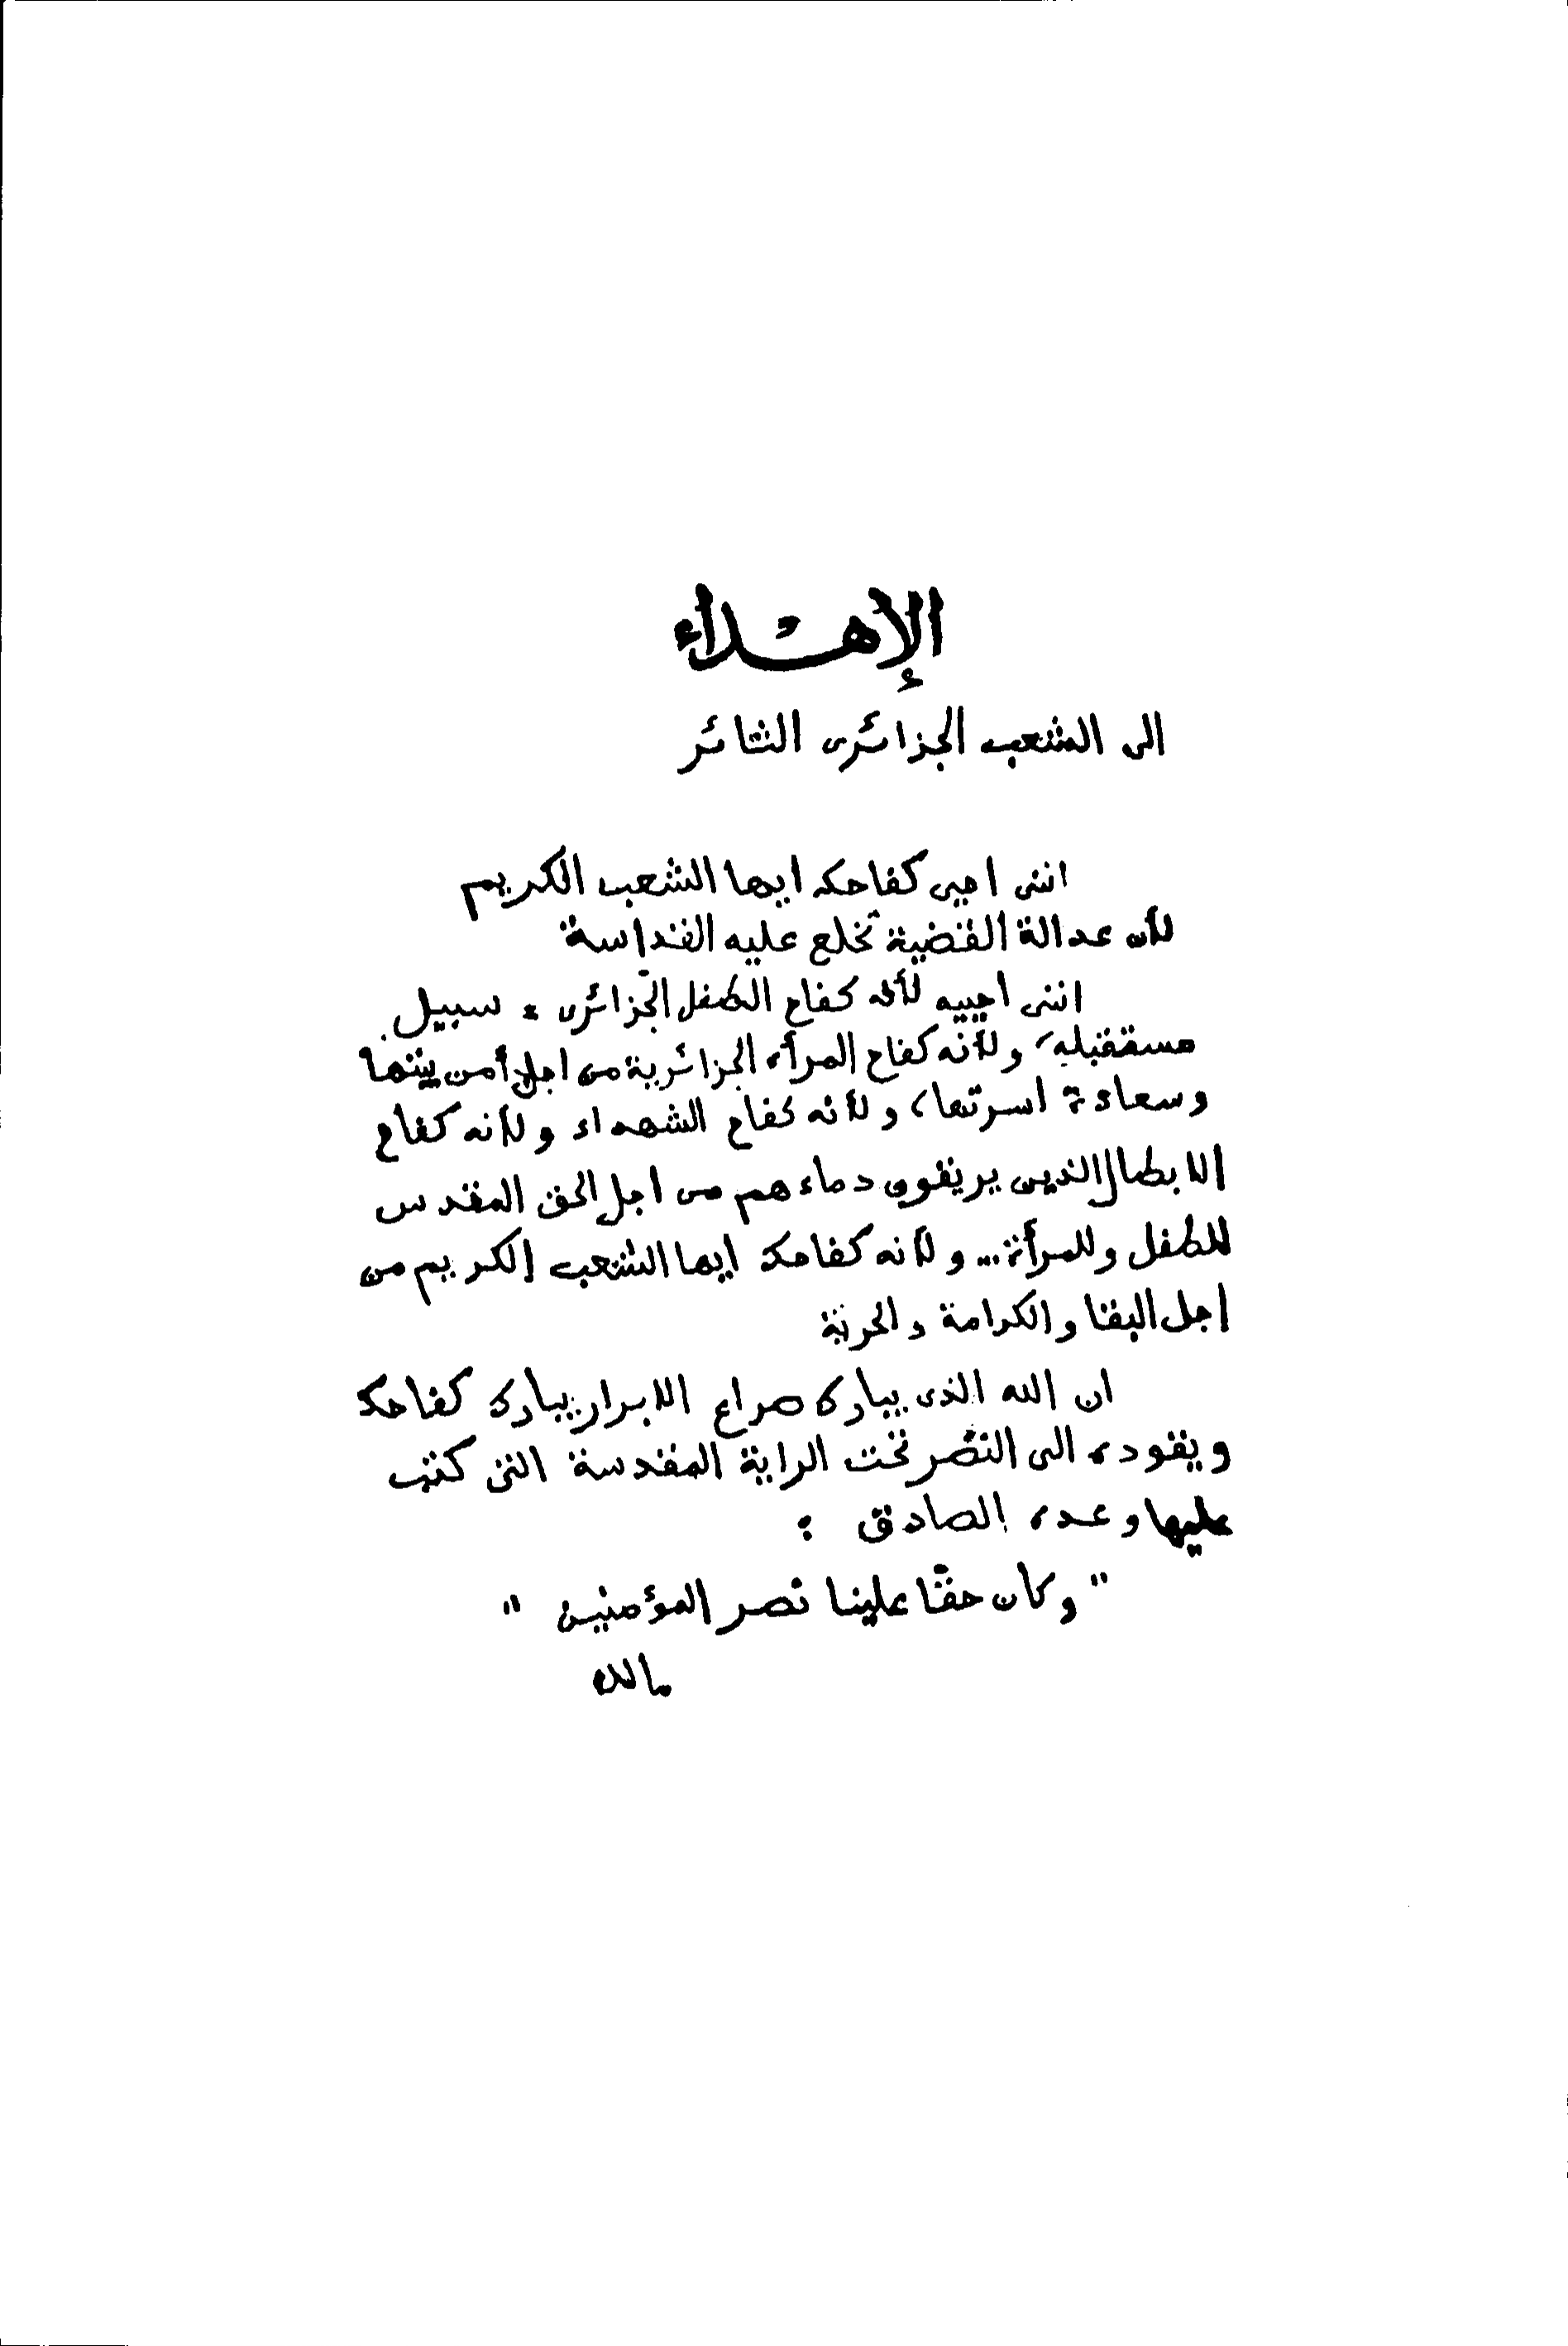 الإهداء
الى الشعب الجزائرى الثائر
اننى احيى كفاحك ايها الشعب الكريم
لأن عدالة القضية تخلع عليه القداسة
اننى احييه لأنه كفاح الطفل الجزائرى سبيل
مستقبله، ولأنه كفاح المرأة الجزائرية من اجل أمن بيتها
وسعادة اسرتها، ولأنه كفاح الشهداء ولأنه كفاح
الابطال الذين يريقون دماءهم من اجل الحق المقدس
للطفل وللمرأة... ولأنه كفاحك ايها الشعب الكريم من
اجل البقا والكرامة والحرية
ان الله الذى يبارك صراع الابرار يبارك كفاحك
ويقوده الى النصر تحت الراية المقدسة التى كتب
عليها وعده الصادق :
"وكان حقًا علينا نصر المؤمنين"
مالك